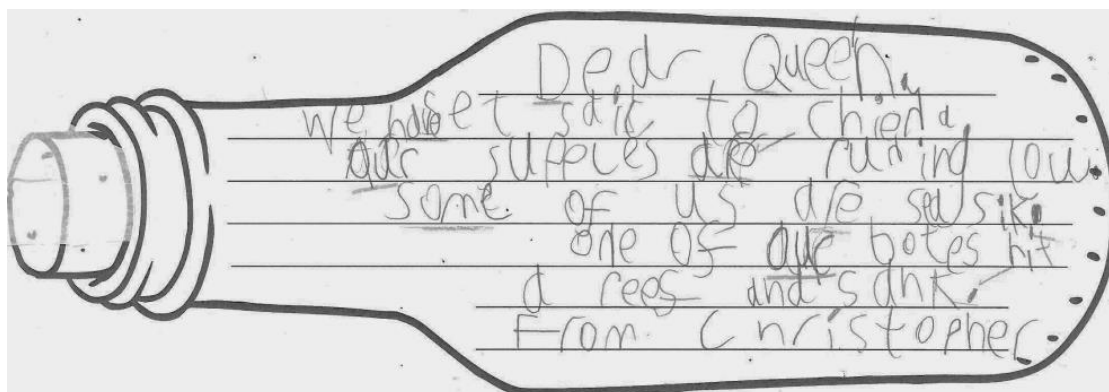 Dear Queen,
We have set sail to chiena
our supples are runing low.
some of us are seasik.
one of our botes hit
a reef and sank.
From Christopher